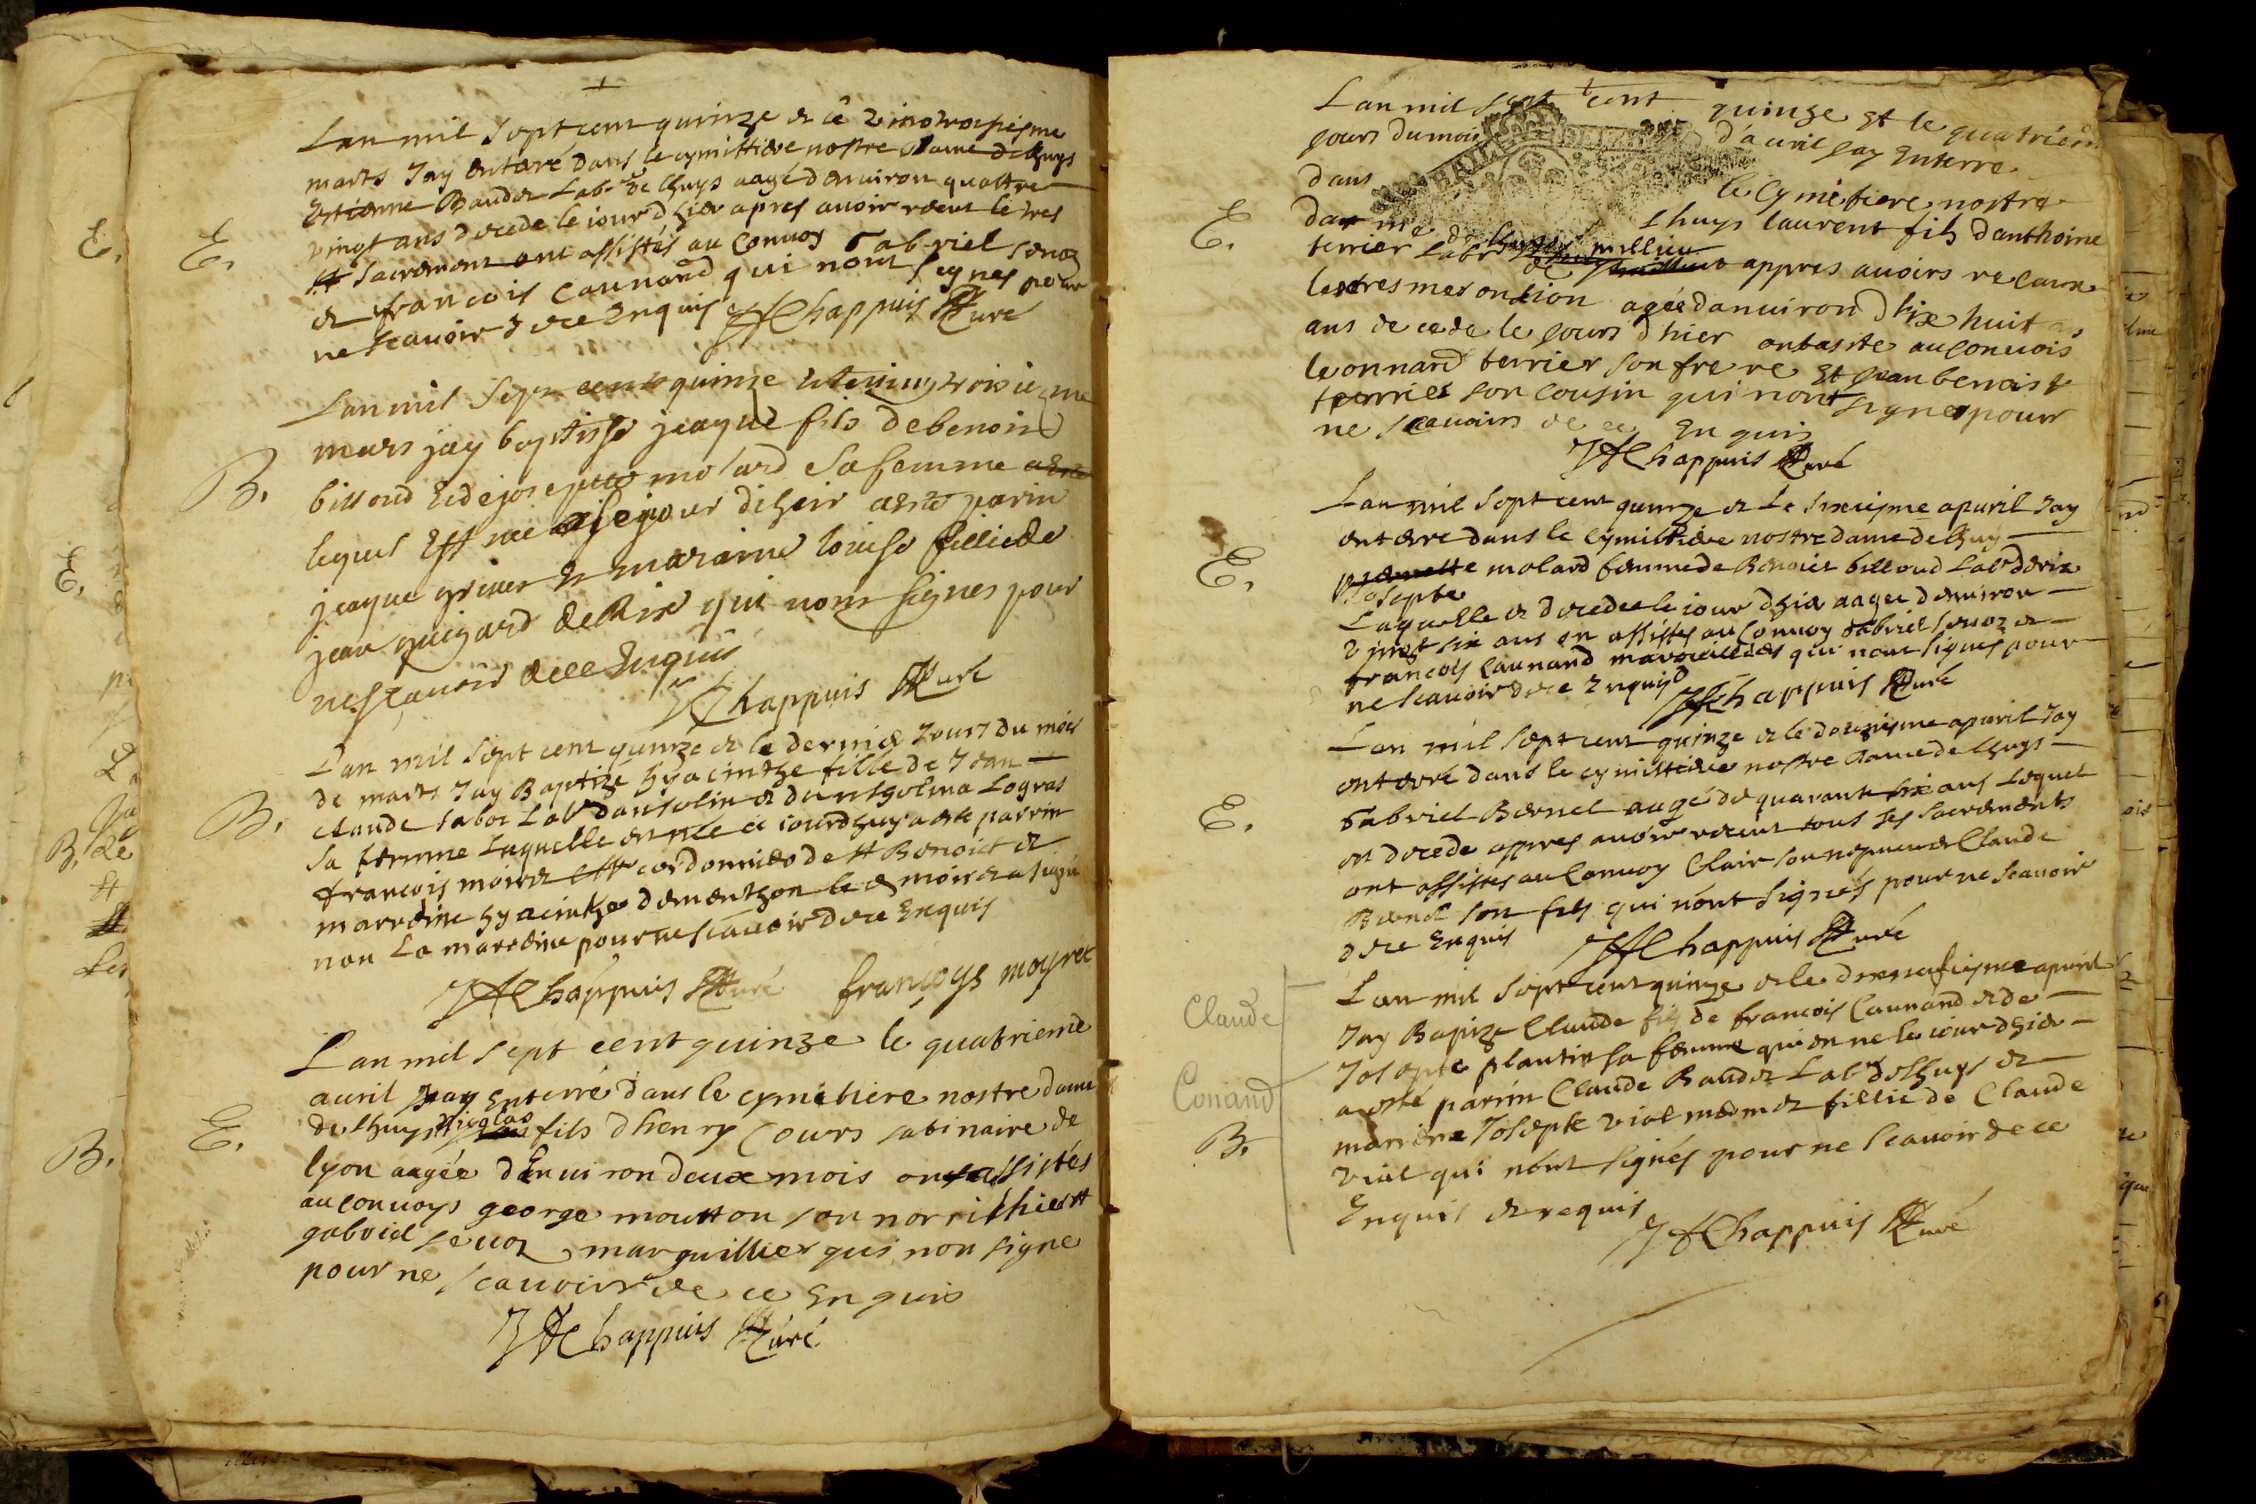 Lan mil sept cent quinze et le vinctroisiesme
mars Jay enterré dans le cymittiere nostre dame de lhuys
E.
Estienne Baudet Labr de lhuys aagé denuiron quattre
vingt ans decede le iour dhier apres auoir receut les
Sacrement ont assistés au Convoy Gabriel seuoz
et francois Caunand qui nont signes pour
ne scauoir de ce Enquis JAChappuis Curé
Lan mil sept cents quinze et troisiesme
mars jay baptisse jeaque fils de benoist
B.
billoud et de josepte molard sa femme
lequel est né le jour diheir parin
jeaque et maraine louise fillie de
jean guigard de Rix qui nont signes pour
ne scauoir de ce Enquis
JAChappuis Curé
Lan mil sept cent quinze et le dernier Jour du mois
de mars Jay Baptizé hyacinthe fille de Jean
B.
claude Labr danfolin et
sa femme Laquelle est née ce iourdhuy a este parrin
francois moiret cordonnier de st Benoict et
marreine hyacinthe dementhon le moiret a signé
non La marreine pour ne scauoir de ce Enquis
JAChappuis Curé françoys moyret
Lan mil sept cent quinze le quatrieme
auril Jay Enterré dans le cymetiere nostre dame
de lhuys nicolas fils dhenry Cours satinaire de
E.
lyon aagée dEnuiron deux mois ont assistés
au conuoys george moutton son norrithier et
gabriel seuoz marguillier qui non signe
pour ne scauoir de ce Enquis
JAChappuis Curé
Lan mil sept cent quinze Et le quatriem
jours du mois d'auril jay Enterre
dans le Cymetiere nostre
E.
dame de lhuys laurent fils danthoine
terrier Labr de appres auoirs re
lextresme ontion agée danuiron dhix huit
ans decede le jours dhier ontasite au conuois
leonnard terrier son frere Et jean benoist
terrier son cousin qui nont signer pour
ne scauoirs de ce Enquis
JAChappuis Curé
Lan mil sept cent quinze et Le sixiesme apuril Jay
enterre dans le Cymittiere nostre dame de lhuy
E.
Josepte molard femme de Benoict billoud Labr de rix
Laquelle et decedee le iour dhier aagee denuiron
vingt six ans on assistes au Conuoy Gabriel seuoz et
francois Caunand marguilliers qui nont signes pour
ne scauoir de ce Enquis JAChappuis Curé
Lan mil sept cent quinze et le douziesme apuril Jay
enterré dans le cymittiere nostre dame de lhuys
E.
Gabriel Bernet aagé de quarante six ans Lequel
est decede appres auoir receut tous ses sacrements
ont assistes au Conuoy Clair son nepueu et Claude
Bernet son fils qui nont signés pour ne scauoir
de ce Enquis JAChappuis Curé
Lan mil sept cent quinze et le dixneufiesme apuril
Claude
Jay Baptize Claude fils de francois Caunand et de
Josepte plantin sa femme qui est ne le iour dhier
Conand
a esté parrin Claude Baudet Labr de lhuys et
B.
marreine Josepte vial fillie de Claude
vial qui nont signés pour ne scauoir de ce
Enquis et requis
JAChappuis Curé